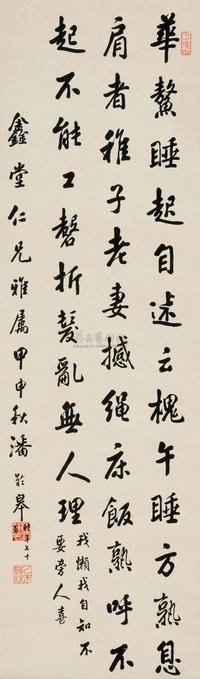 華鰲睡起自述云槐午睡方熟息
肩者稚子老妻撼绳床飯熟呼不
起不能工磬折髮亂無人理
我懶我自知不
要旁人喜
鑫堂仁兄雅属甲申秋潘齡皋
時年七十